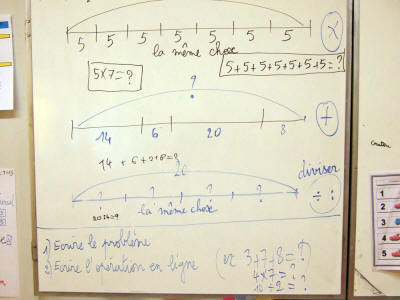 5 5 5 5 5 5 5
×
la même chose
5×7=?
5+5+5+5+5+5+5=?
?
+
14 6 20 8
14 + 6 +
20
diviser
? ? ? ? ?
÷ :
la même chose
1) Ecrire le problème
2) Ecrire l'opération en ligne
ex 3+7+8=?
4×7=?
10÷2=?
1
2
3
4
5